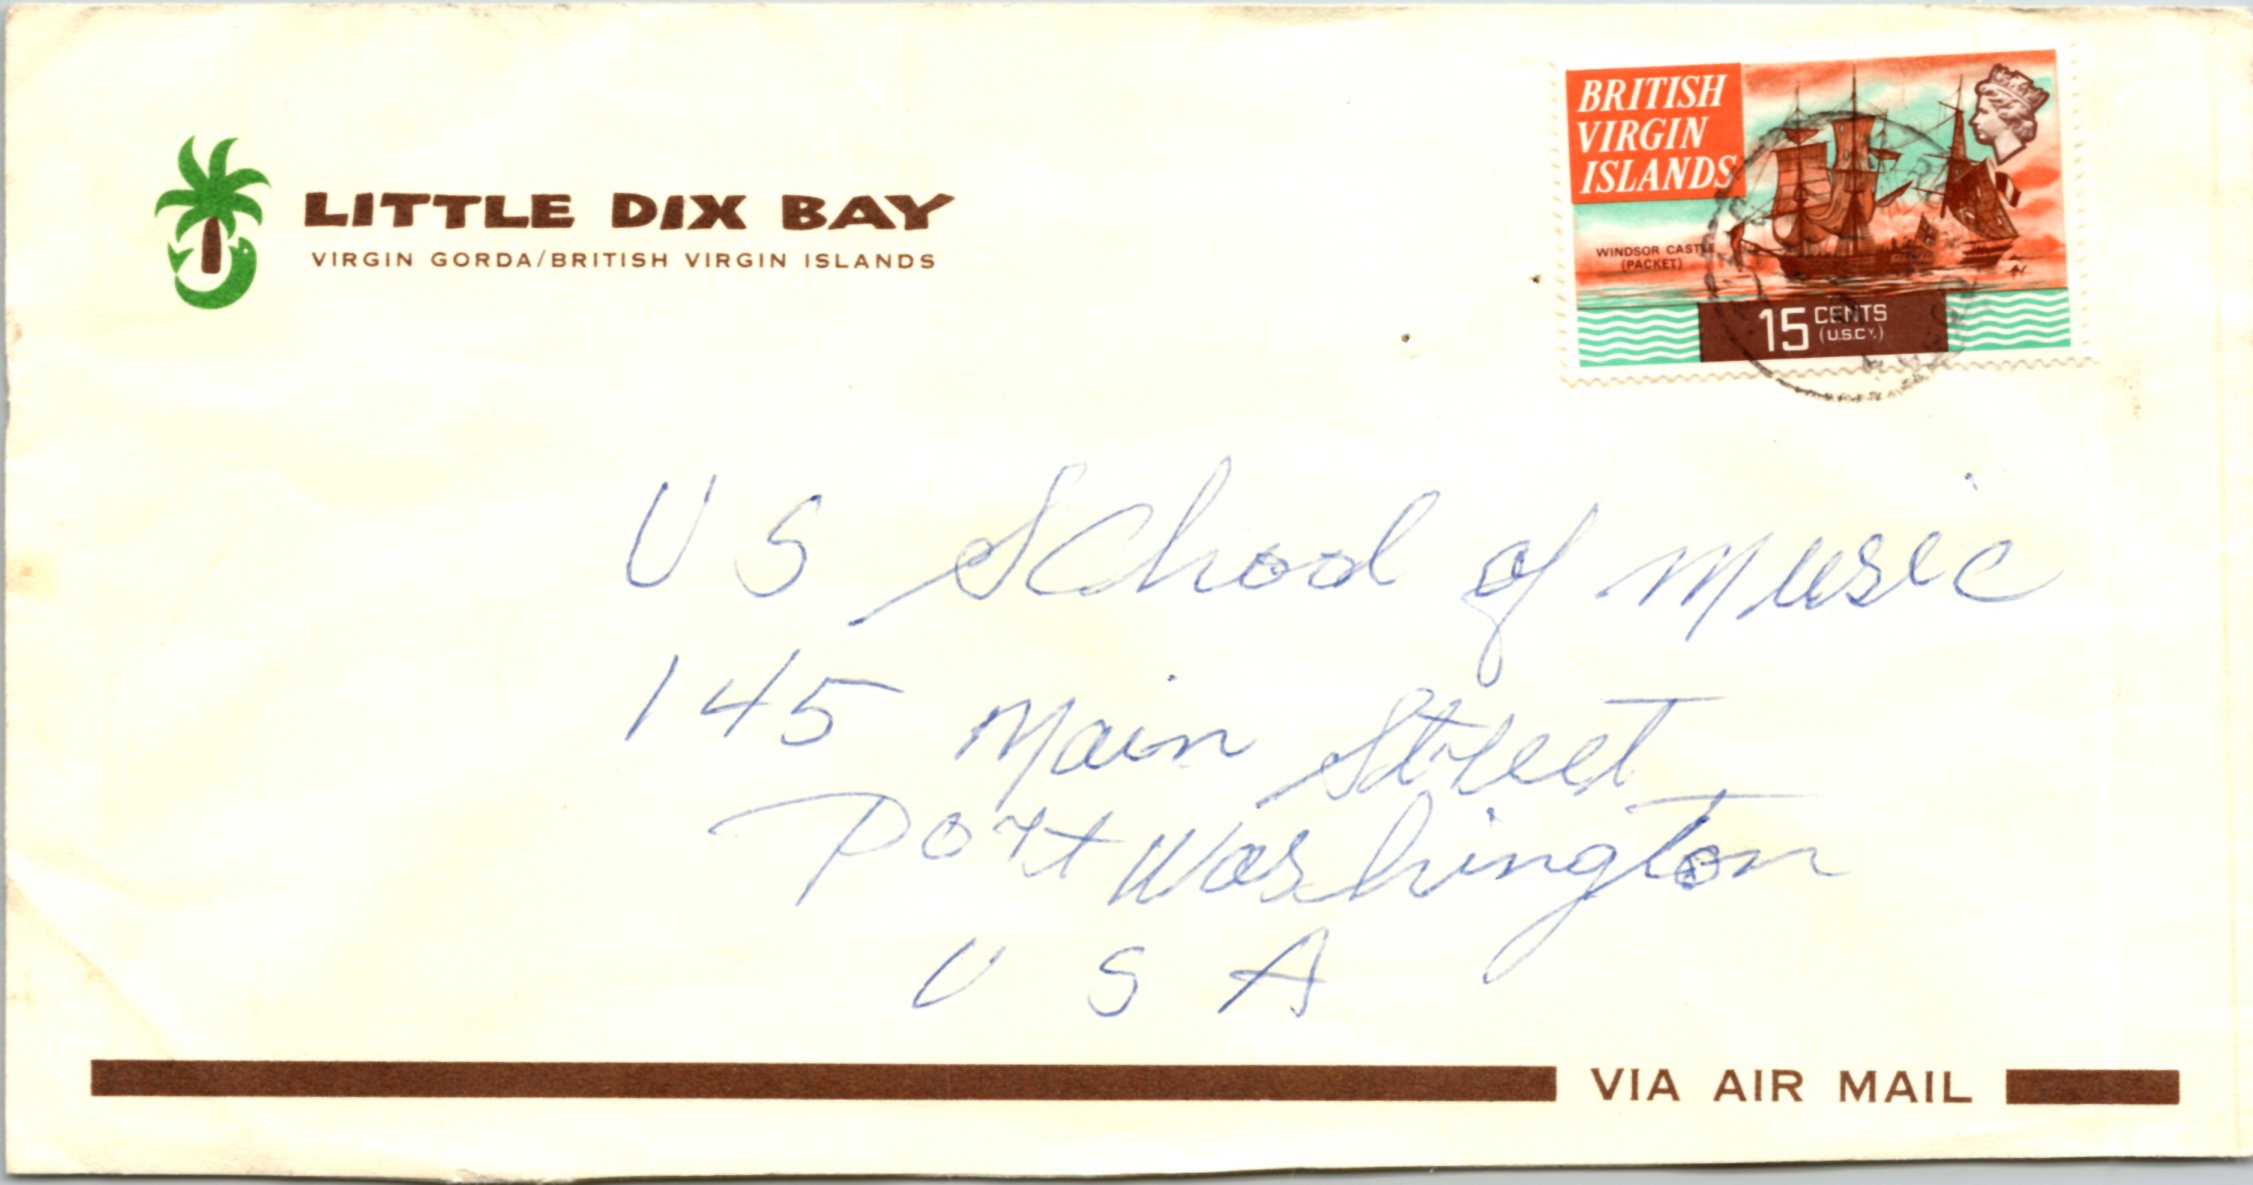 LITTLE DIX BAY
VIRGIN GORDA/BRITISH VIRGIN ISLANDS
BRITISH
VIRGIN
ISLANDS
WINDSOR CASTLE
(PACKET)
15 CENTS
(U.S.CY.)
US School of Music
145 Main Street
Port Washington
USA
VIA AIR MAIL